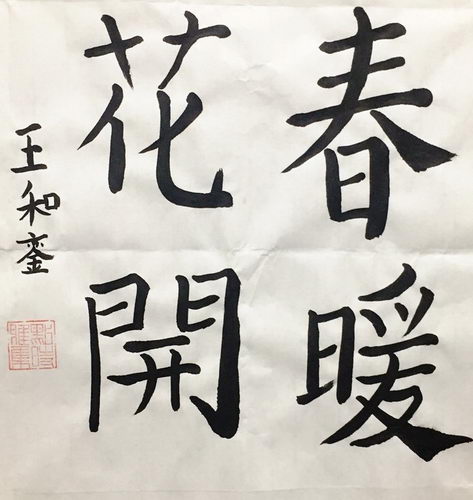 春暖
花開
王和銮